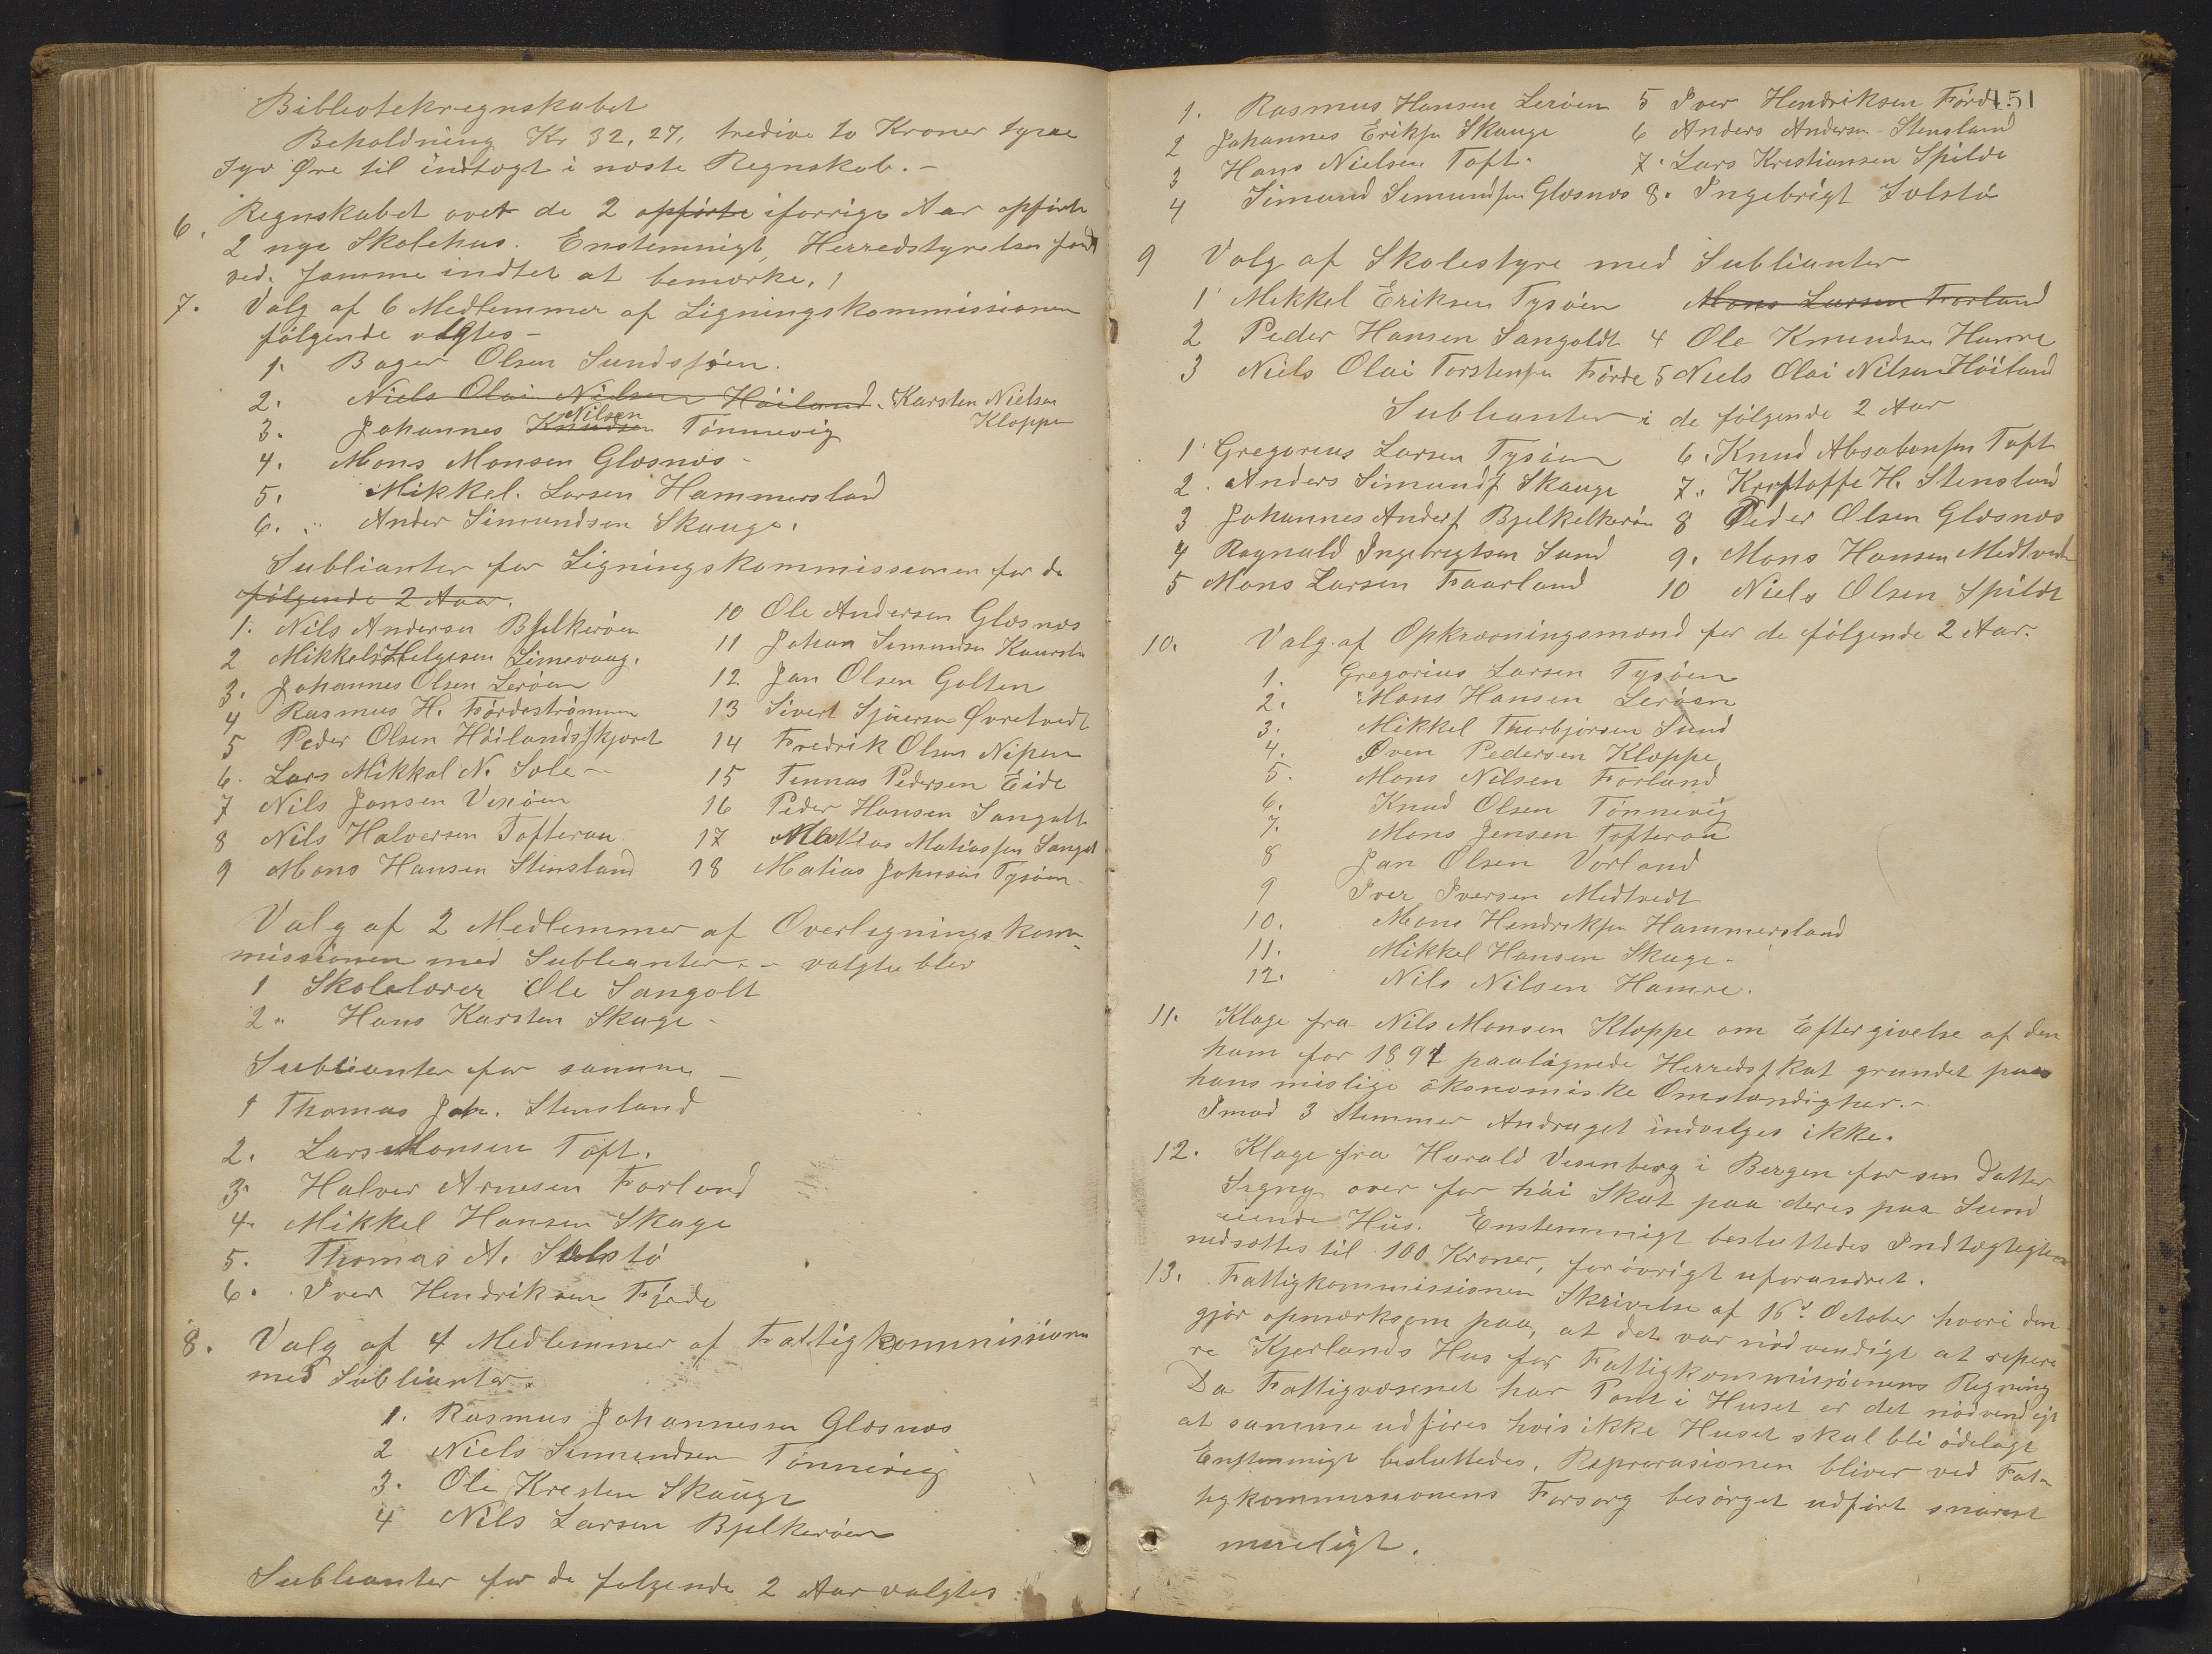 Bibliotekregnskabet
Beholdning Kr 32,27, tredive to Kroner tyve
syv Øre til indtægt i næste Regnskab. -
6. Regnskabet over de 2 opførte iforrige Aar opførte
2 nye Skolehus. Enstemmigt, Herredstyrelsen fandt
ved samme indtet at bemærke.
7. Valg af 6 Medlemmer af Ligningskommissionen
følgende valgtes -
1. Bager Olsen Sundssjøen.
2. Niels Olai Nielsen Høiland. Karsten Nielsen
Kloppe
3. Johannes Knudsen Nilsen Tønnevig
4. Mons Monsen Glæsnæs -
5. Mikkel Larsen Hammersland
6. Ander Simundsen Skauge.
Sublianter for Ligningskommissionen for de
følgende 2 Aar.
1. Nils Andersen Bjelkerøen
2 Mikkel Helgesen Limevaag.
3. Johannes Olsen Lerøen
4 Rasmus H. Førdestrømmen
5 Peder Olsen Høilandsskjæret
6. Lars Mikkal N. Sole -
7 Nils Jansen Vixøen
8 Nils Halversen Tofterøu
9 Mons Hansen Stensland
10 Ole Andersen Glæsnæs
11 Johan Simundsen Kaursla
12 Jan Olsen Golten
13 Sivert Sjursen Øvretvedt
14 Fredrik Olsen Nipen
15 Tennas Pedersen Eide
16 Peder Hansen Sangolt
17 Matias Matiassen Sangol
18 Matias Johnsen Tysøen
Valg af 2 Medlemmer af Overligningskom-
missionen med Sublianter. - valgte blev
1 Skolelærer Ole Sangolt
2. Hans Karsten Skage -
Sublianter for samme -
1 Thomas Joh. Stensland
2. Lars Monsen Toft.
3. Halver Arnesen Forland
4. Mikkel Hansen Skage
5. Thomas A. Solstø
6. Iver Hendriksen Førde
8. Valg af 4 Medlemmer af Fattigkommissionen
med Sublianter.
1. Rasmus Johannessen Glæsnæs
2 Niels Simundsen Tønnevig
3. Ole Kresten Skauge
4 Nils Larsen Bjelkerøen
Sublianter for de følgende 2 Aar valgtes
151
1. Rasmus Hansen Lerøen 5 Iver Hendriksen Førde
2 Johannes Eriksen Skauge 6 Anders Andersen Stensland
3 Hans Nielsen Toft. 7. Lars Kristiansen Spilde
4 Simund Simundsen Glæsnæs 8. Ingebrigt Solstø
9 Valg af Skolestyre med Sublianter
1 Mikkel Eriksen Tysøen Mons Larsen Forland
2 Peder Hansen Sangoldt 4 Ole Knundsen Hamre
3 Niels Olai Torstensen Førde 5 Niels Olai Nilsen Høiland
Sublianter i de følgende 2 Aar
1 Gregorius Larsen Tysøen 6. Knud Absalonsen Toft
2. Anders Simunds Skauge 7. Krestoffe H. Stensland
3 Johannes Anders Bjelkelkerøen 8 Peder Olsen Glæsnæs
4 Ragnald Ingebregtsen Sund 9. Mons Hansen Medtvedt
5 Mons Larsen Faarland 10 Niels Olsen Spildt
10. Valg af Opkrævningsmænd for de følgende 2 Aar.
1. Gregorius Larsen Tysøen
2. Mons Hansen Lerøen
3. Mikkel Thorbjørsen Sund
4. Sven Pedersen Kloppe
5. Mons Nilsen Forland
6. Knud Olsen Tønnevig
7. Mons Jensen Tofterøu
8 Jan Olsen Vorland
9 Iver Iversen Medtvedt
10. Mons Hendriksen Hammersland
11. Mikkel Hansen Skage.
12. Nils Nilsen Hamre.
11. Klage fra Nils Monsen Kloppe om Eftergivelse af den
ham for 1891 paalignede Herredskat grundet paa
hans mislige økonomiske Omstændigher. -
Imod 3 Stemmer Andraget indvilges ikke.
12. Klage fra Harald Vesenberg i Bergen for sin Datter
Signy over for høi Skat paa deres paa Sund
eiende Hus. Enstemmigt besluttedes Indtægtegten
nedsættes til 100 Kroner, forøvrigt uforandret.
13. Fattigkommissionen Skrivelse af 16de October hvori den
gjør opmærksom paa, at det var nødvendigt at repere
re Kjerlands Hus for Fattigkommissionens Regning
Da Fattigvæsenet har Pant i Huset er det nødvendigt
at samme udføres hvis ikke Huset skal bli ødelagt
Enstemmigt besluttedes, Reprerasionen bliver ved Fat-
tigkommissionens Forsorg besørget udført snarest
mueligt.